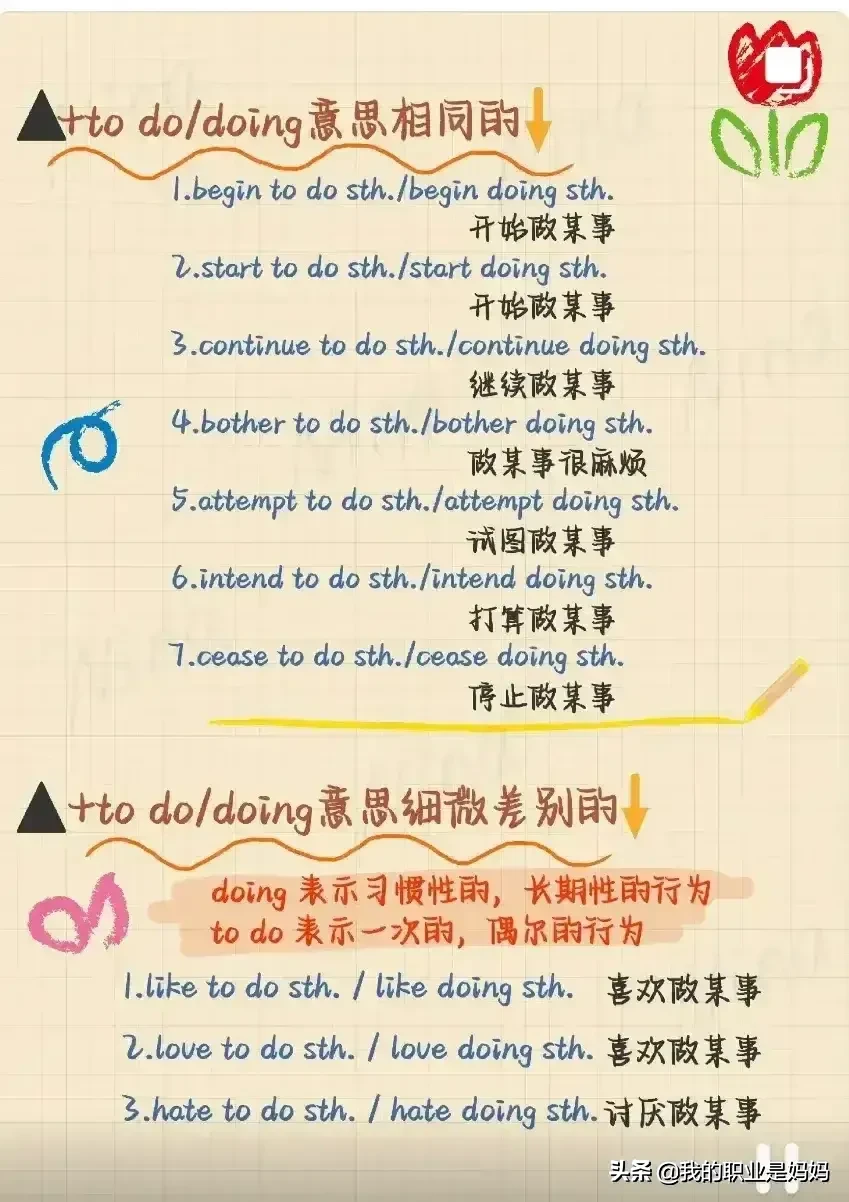 +to do/doing意思相同的
1.begin to do sth./begin doing sth.
开始做某事
2.start to do sth./start doing sth.
开始做某事
3.continue to do sth./continue doing sth.
继续做某事
4.bother to do sth./bother doing sth.
做某事很麻烦
5.attempt to do sth./attempt doing sth.
试图做某事
6.intend to do sth./intend doing sth.
打算做某事
7.cease to do sth./cease doing sth.
停止做某事
+to do/doing意思细微差别的
doing 表示习惯性的，长期性的行为
to do 表示一次的，偶尔的行为
1.like to do sth. / like doing sth. 喜欢做某事
2.love to do sth. / love doing sth. 喜欢做某事
3.hate to do sth. / hate doing sth. 讨厌做某事
头条 @我的职业是妈妈